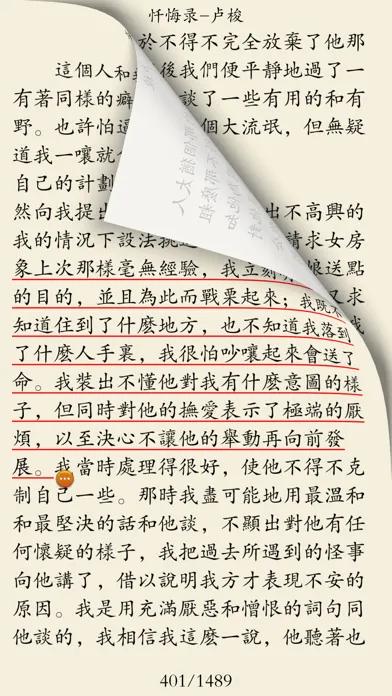 忏悔录-卢梭
於不得不完全放棄了他那
這個人和 後我們便平静地過了一
有著同樣的癖 談了一些有用的和有
野。也許怕這 個大流氓，但無疑
道我一嚷就
自己的計劃
然向我提出 出不高興的
我的情況下設法挑 請求女房
象上次那樣毫無經驗，我立刻 娘送點
的目的，並且為此而戰栗起來；我既不 又求
知道住到了什麼地方，也不知道我落到
了什麼人手裏，我很怕吵嚷起來會送了
命。我裝出不懂他對我有什麼意圖的樣
子，但同時對他的撫愛表示了極端的厭
煩，以至決心不讓他的舉動再向前發
展。我當時處理得很好，使他不得不克
制自己一些。那時我盡可能地用最溫和
和最堅決的話和他談，不顯出對他有任
何懷疑的樣子，我把過去所遇到的怪事
向他講了，借以說明我方才表現不安的
原因。我是用充滿厭惡和憎恨的詞句同
他談的，我相信我這麼一說，他聽著也
401/1489